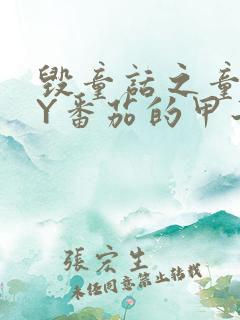 毀童話之童
Y番茄的甲
張宏生
未任同意禁止转载